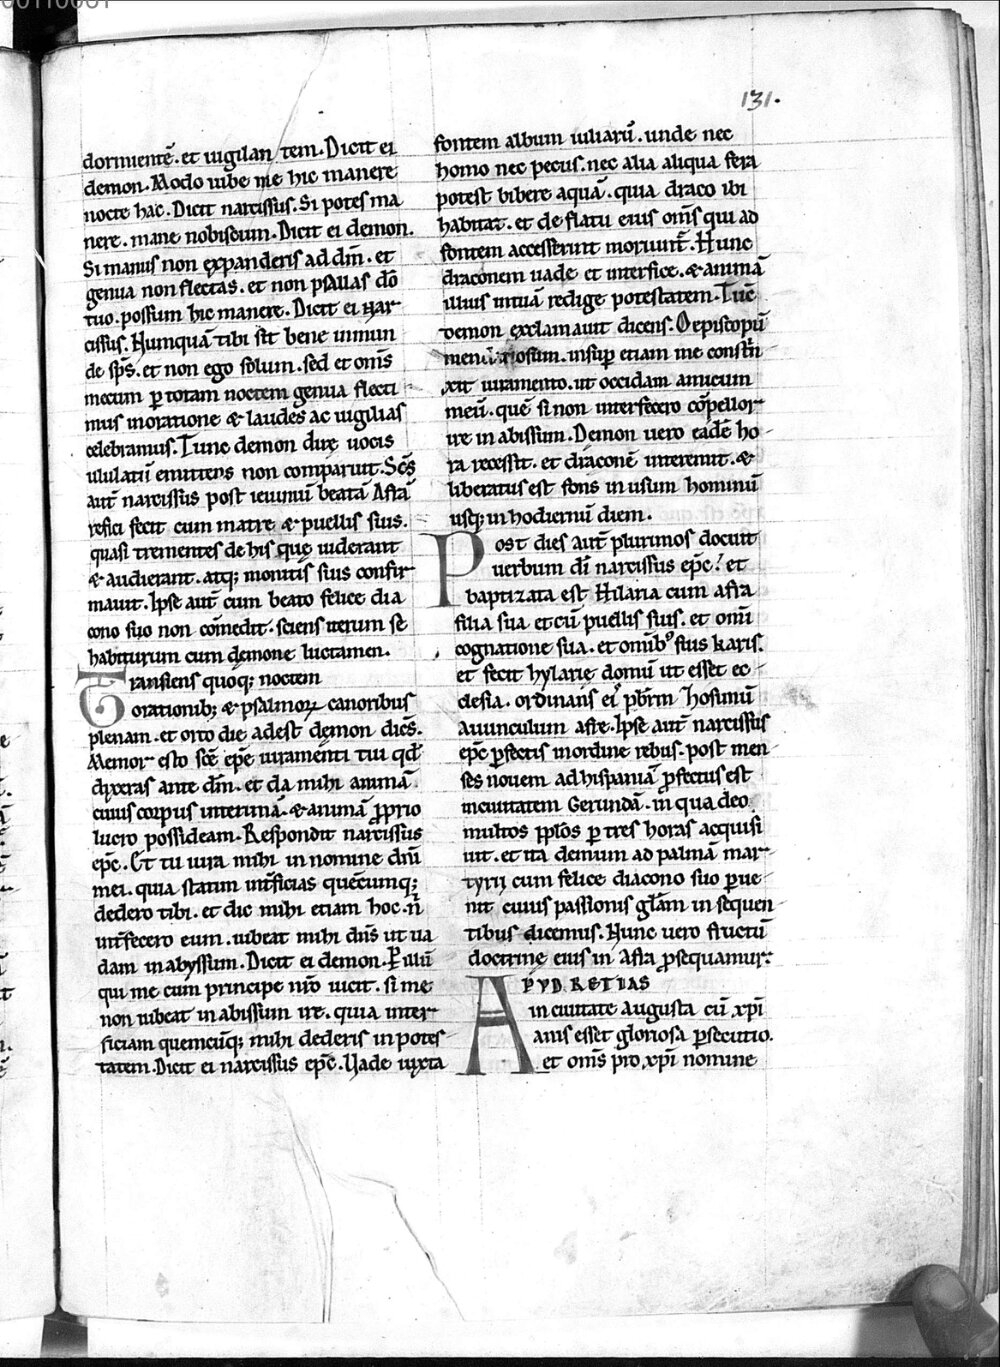 131.
dormientē. et uigilan tem. Dicit ei
demon. Modo iube me hic manere
nocte hac. Dicit narcissus. Si potes ma
nere. mane nobiscum. Dicit ei demon.
Si manus non expanderis ad dm̄. et
genua non flectas. et non psallas dō
tuo. possum hic manere. Dicit ei Nar-
cissus. Numquā tibi sit bene inmun
de sp̄s. et non ego solum. sed et om̄s
mecum p totam noctem genua flecti
mus in oratione & laudes ac uigilias
celebramus. Tunc demon dire uocis
ululatū emittens non comparuit. Scs̄
aut̄ narcissus post ieiuniū beatā Afrā
refici fecit cum matre & puellis suis.
quasi trementes de his quę uiderant
& audierant. atq; monitis suis confir
mauit. Ipse aut̄ cum beato felice dia
cono suo non com̄edit. sciens iterum se
habiturum cum demone luctamen.
Transiens quoq; noctem
orationib; & psalmoꝝ canoribus
plenam. et orto die adest demon dicēs.
Memor esto scē ep̄e iuramenti tui qd̄
dixeras ante dm̄. et da mihi animā
cuius corpus interimā. & animā p̱prio
lucro possideam. Respondit narcissus
ep̄c. Et tu iura mihi in nomine dn̄i
mei. quia statim int̄ficias quēcumq;
dedero tibi. et dic mihi etiam hoc. n̄
int̄fecero eum. iubeat mihi dn̄s ut ua
dam in abyssum. Dicit ei demon. P illū
qui me cum principe nr̄o uicit. si me
non iubeat in abissum ire. quia inter-
ficiam quemcūq; mihi dederis in potes
tatem. Dicit ei narcissus ep̄c. Uade iuxta
fontem album iuliarū. unde nec
homo nec pecus. nec alia aliqua fera
potest bibere aquā. quia draco ibi
habitat. et de flatu eius om̄s qui ad
fontem accesserint moriunt̄. Hunc
draconem uade et interfice. & animā
illius in tuā redige potestatem. Tūc
demon exclamauit dicens. O episcopū
insup etiam me constri
xit iuramento. ut occidam amicum
meū. quē si non interfecero cōpellor
ire in abissum. Demon uero eadē ho-
ra recessit. et draconē interemit. &
liberatus est fons in usum hominū
usq; in hodiernū diem.
Post dies aut̄ plurimos docuit
uerbum dī narcissus ep̄c. et
baptizata est Hilaria cum afra
filia sua et cū puellis suis. et omī
cognatione sua. et omib' suis karis.
et fecit hylarię domū ut esset ec
clesia. ordinans ei pb̄rm Zosimū
auunculum afre. Ipse aut̄ narcissus
ep̄c pfectis in ordine rebus. post men
ses nouem ad hispaniā pfectus est
in ciuitatem Gerundā. in qua deo
multos p̱plōs p tres horas acquisi
uit. et ita demum ad palmā mar-
tyrii cum felice diacono suo pue
nit cuius passionis gl̄am in sequen
tibus dicemus. Nunc uero fructū
doctrine eius in afra psequamur.
APVD RETIAS
in ciuitate augusta cū xp̄i
anis esset gloriosa psecutio.
et om̄s pro xp̄i nomine